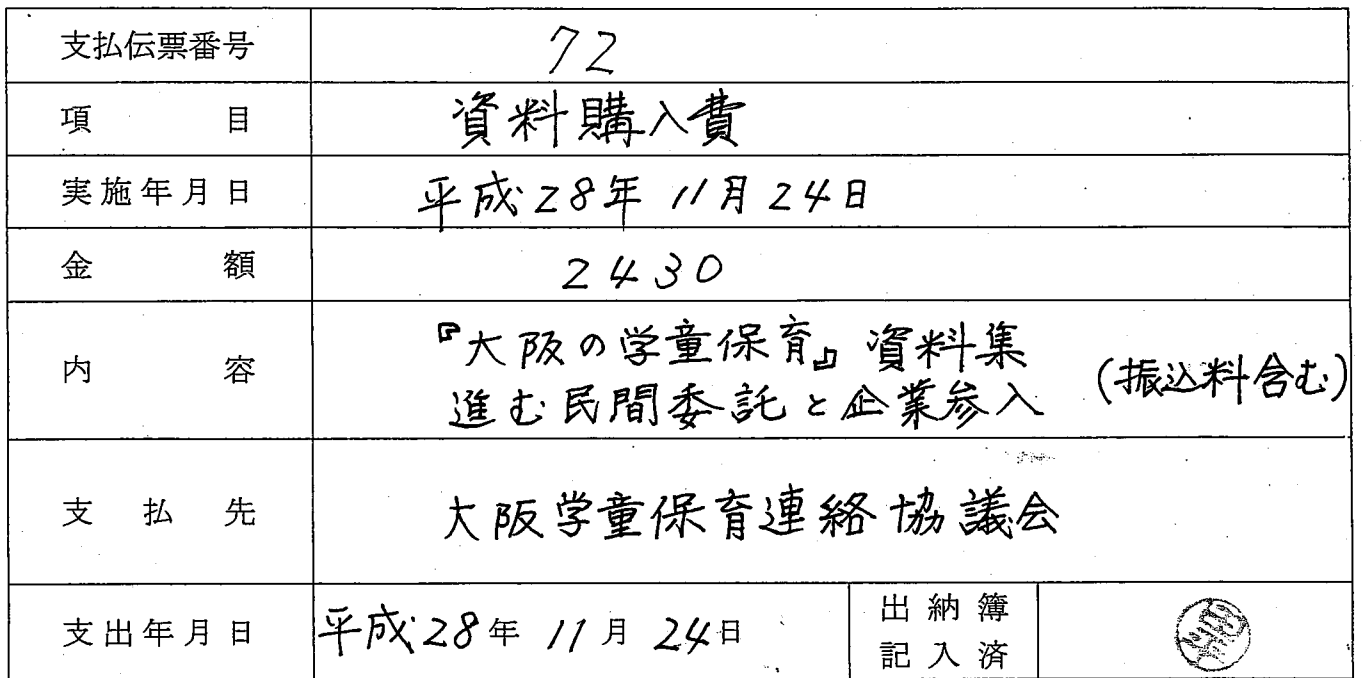 支払伝票番号 72
項目 資料購入費
実施年月日 平成28年11月24日
金額 2430
内容 『大阪の学童保育』資料集
進む民間委託と企業参入 (振込料含む)
支払先 大阪学童保育連絡協議会
支出年月日 平成28年11月24日 出納簿
記入済